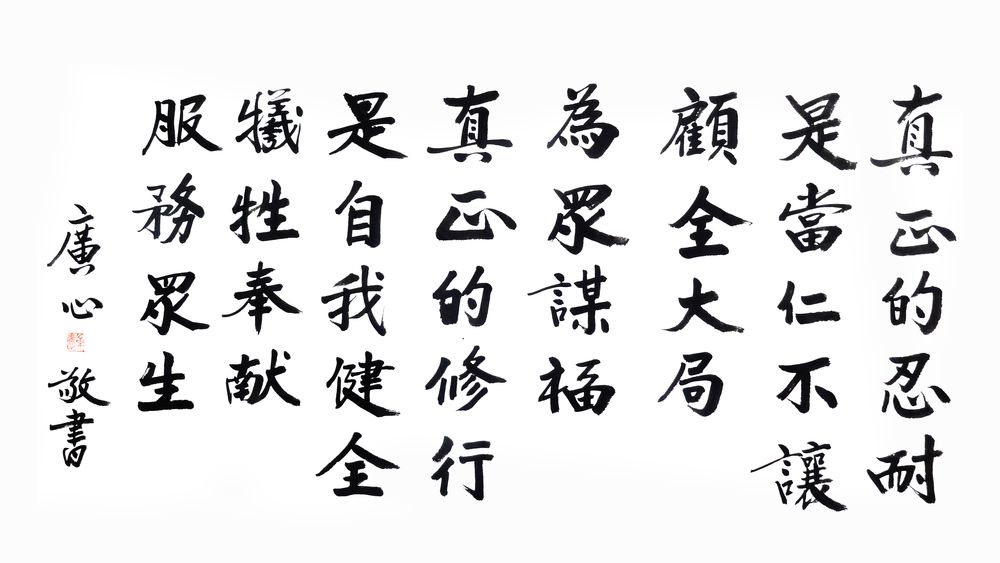 真正的忍耐
是當仁不讓
顧全大局
為眾謀福
真正的修行
是自我健全
犧牲奉献
服務眾生
廣心敬書